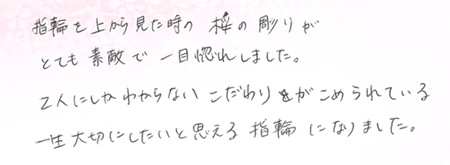 指輪を上から見た時の 桜の彫りが
とても素敵で一目惚れしました。
2人にしかわからない こだわりがこめられている
一生大切にしたいと思える指輪になりました。